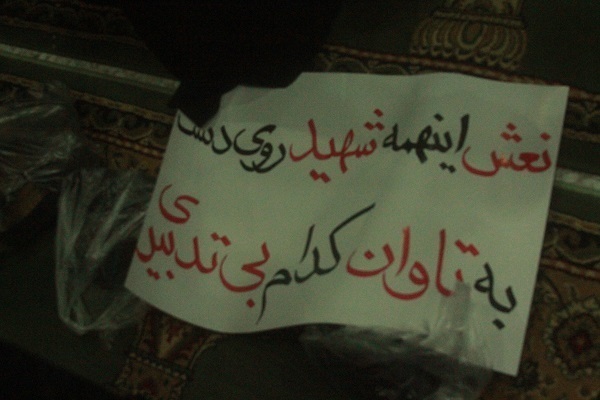 نعش اینهمه شهید روی دست
به تاوان کدام بی تدبیری